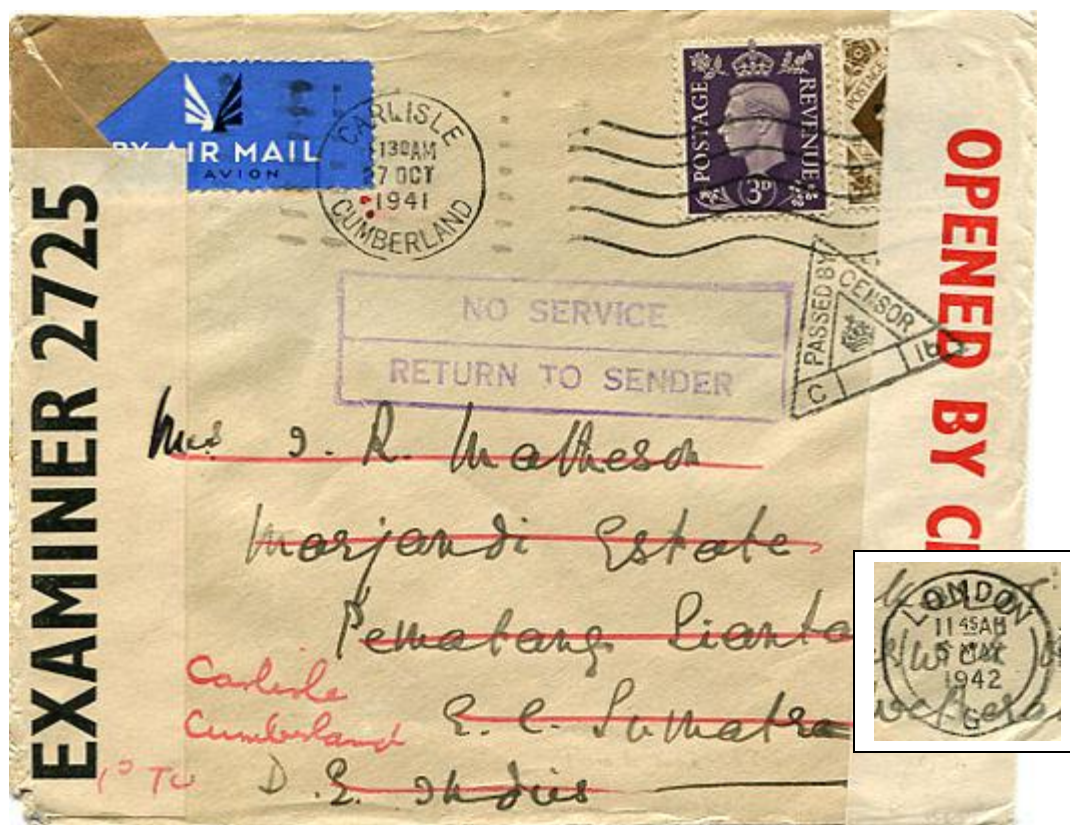 BY AIR MAIL
AVION
CARLISLE
1130AM
27 OCT
1941
CUMBERLAND
POSTAGE
REVENUE
3D
POSTAGE
PASSED BY
CENSOR
C
16
NO SERVICE
RETURN TO SENDER
EXAMINER 2725
OPENED BY
Mrs I. R. Matheson
Marjandi Estate
Pematang Sianta
E. C. Sumatra
D. E. Indies
Carlisle
Cumberland
TO
LONDON
11 45 AM
5 MAY
1942
G